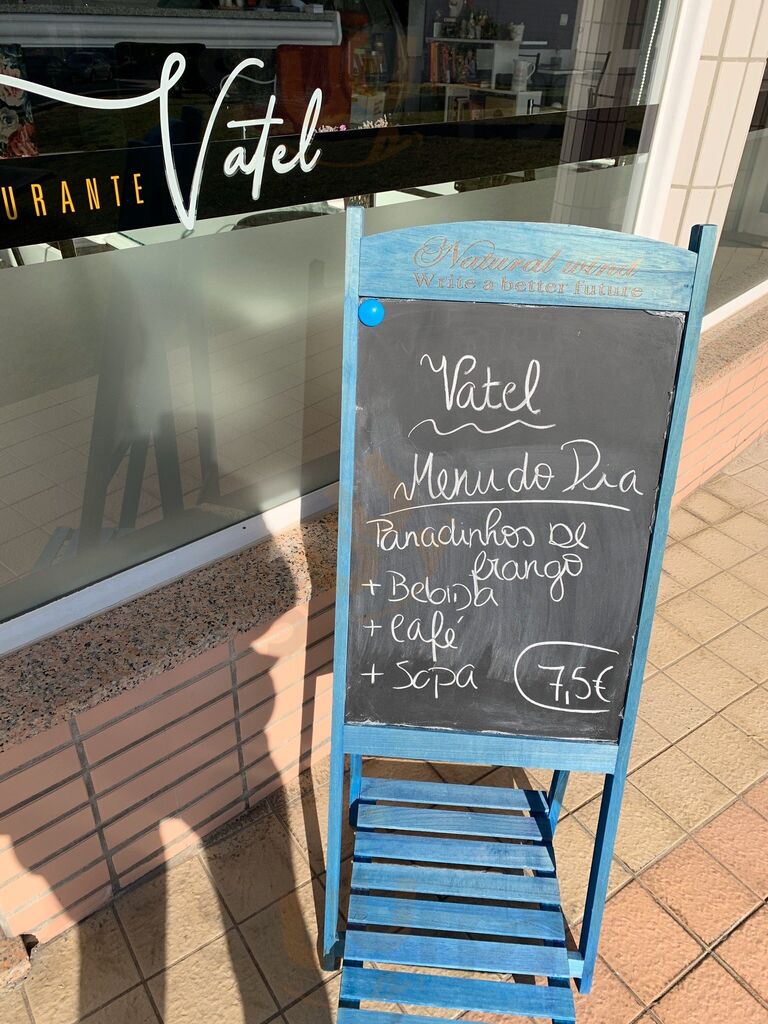 URANTE Vatel
Natural wind
Write a better future
Vatel
Menu do Dia
Panadinhos De
frango
+ Bebida
+ Café
+ Sopa 7,5€